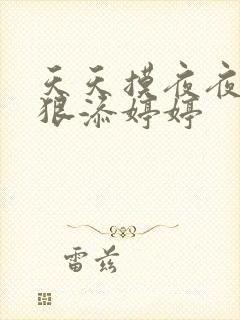 天天摸夜夜
狠添婷婷
雷兹